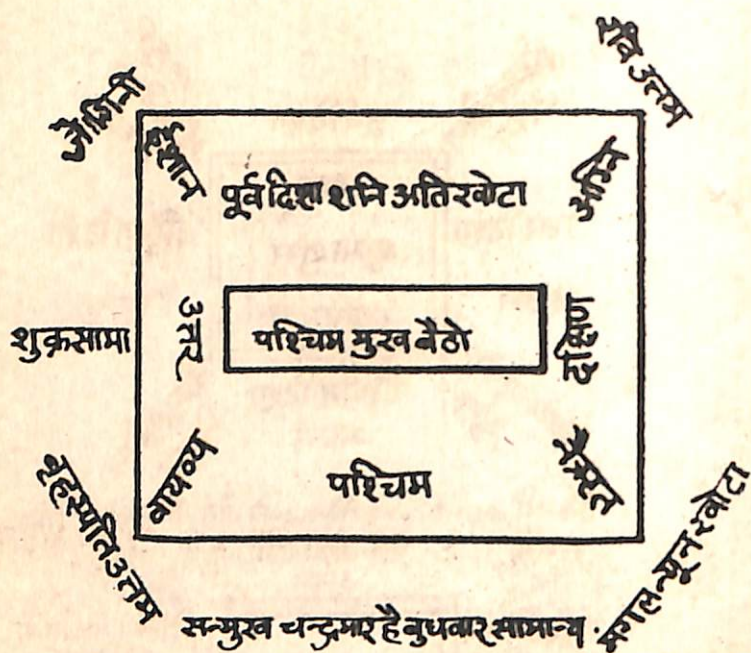 जोगिनी
रवि उत्तम
ईशान
पूर्व दिशा शनि अति खोटा
अग्नि
शुक्र सामा
उत्तर
पश्चिम मुख बैठो
दक्षिण
वायव्य
पश्चिम
नैऋत
बृहस्पति उत्तम
सन्मुख चन्द्रमा र है बुधवार सामान्य .
मंगल न्यून खोटा